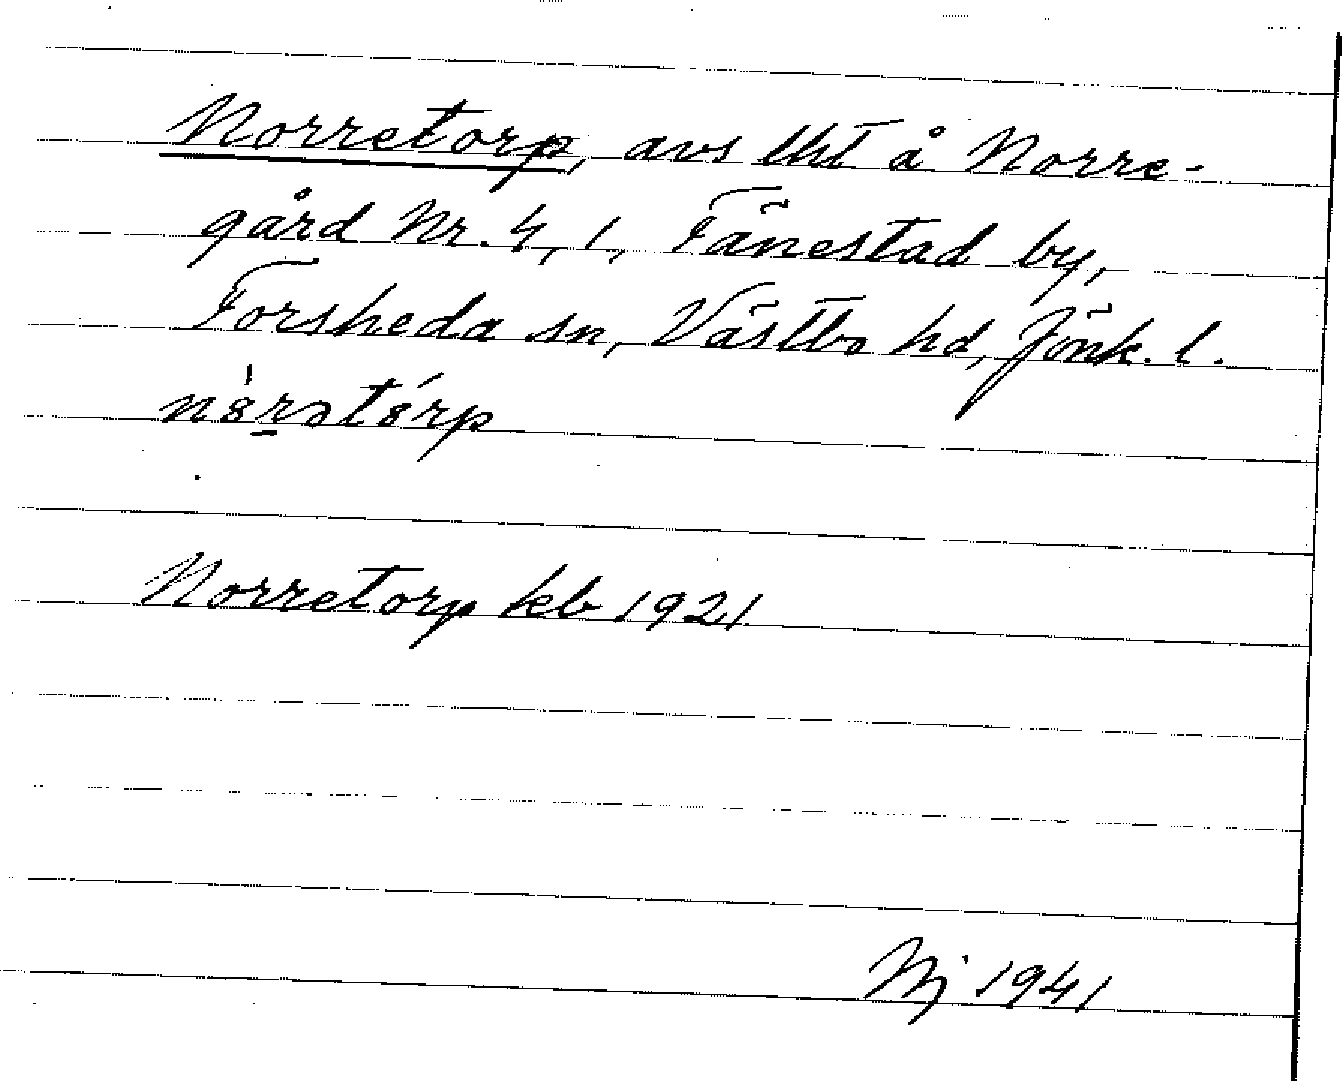 Norretorp, avs lht å Norre-
gård Nr. 4, 1, Fänestad by,
Forsheda sn, Västbo hd, Jönk. l.
nòrətórp
Norretorp kb 1921
Nj 1941